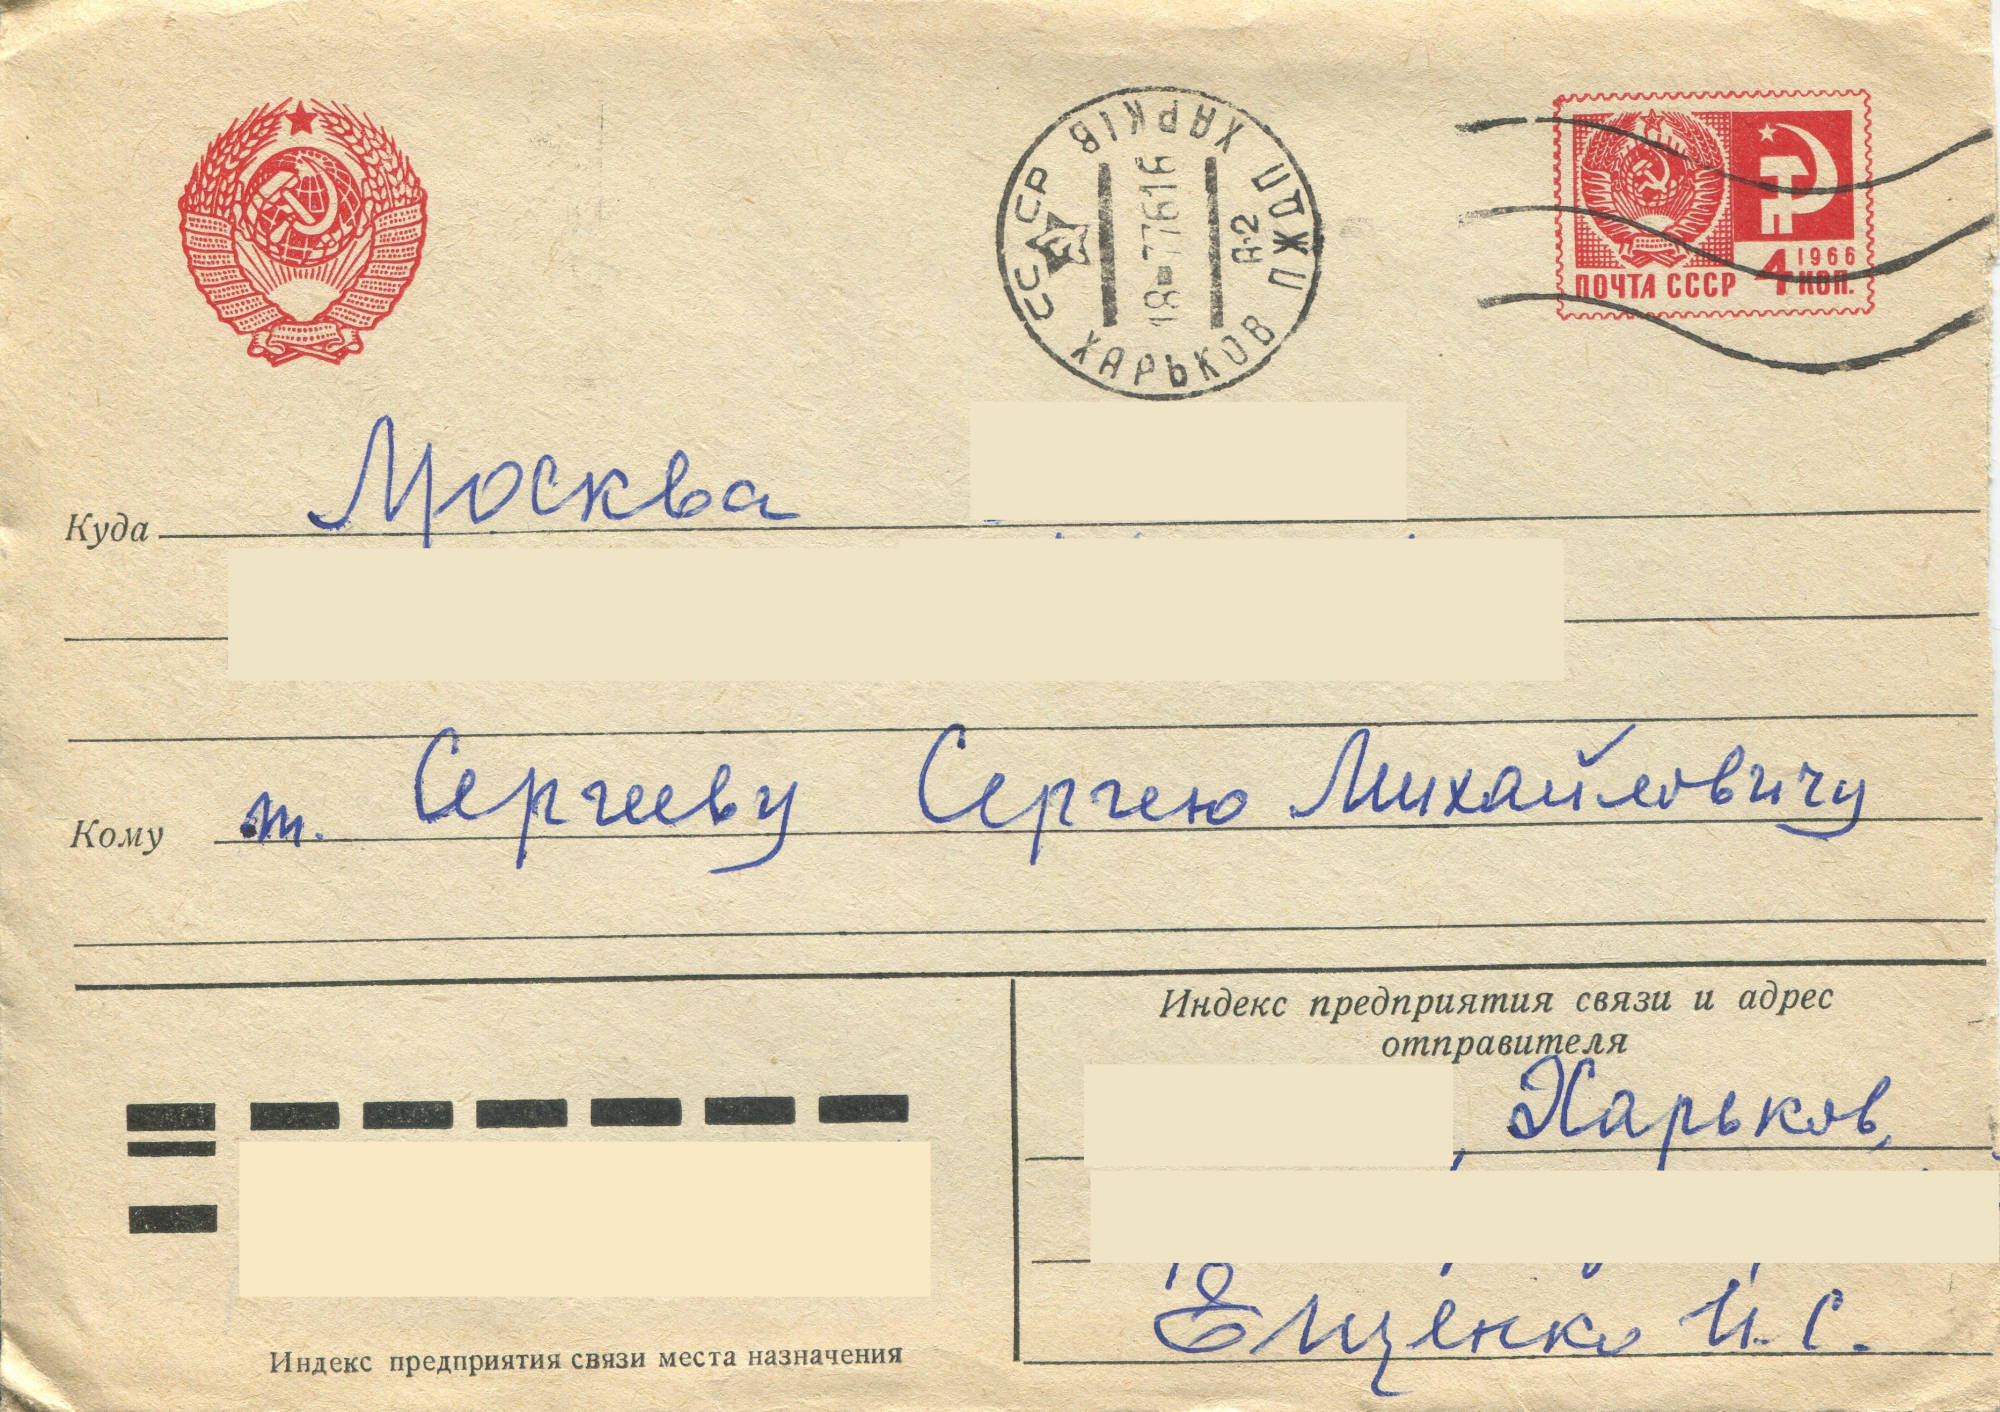 СССР ХАРКІВ ПЖДП
А-2
18-77616
ХАРЬКОВ
ПОЧТА СССР 4 КОП.
1966
Куда Москва
Кому т. Сергееву Сергею Михайловичу
Индекс предприятия связи и адрес
отправителя
, Харьков,
Ещенко И.С.
Индекс предприятия связи места назначения